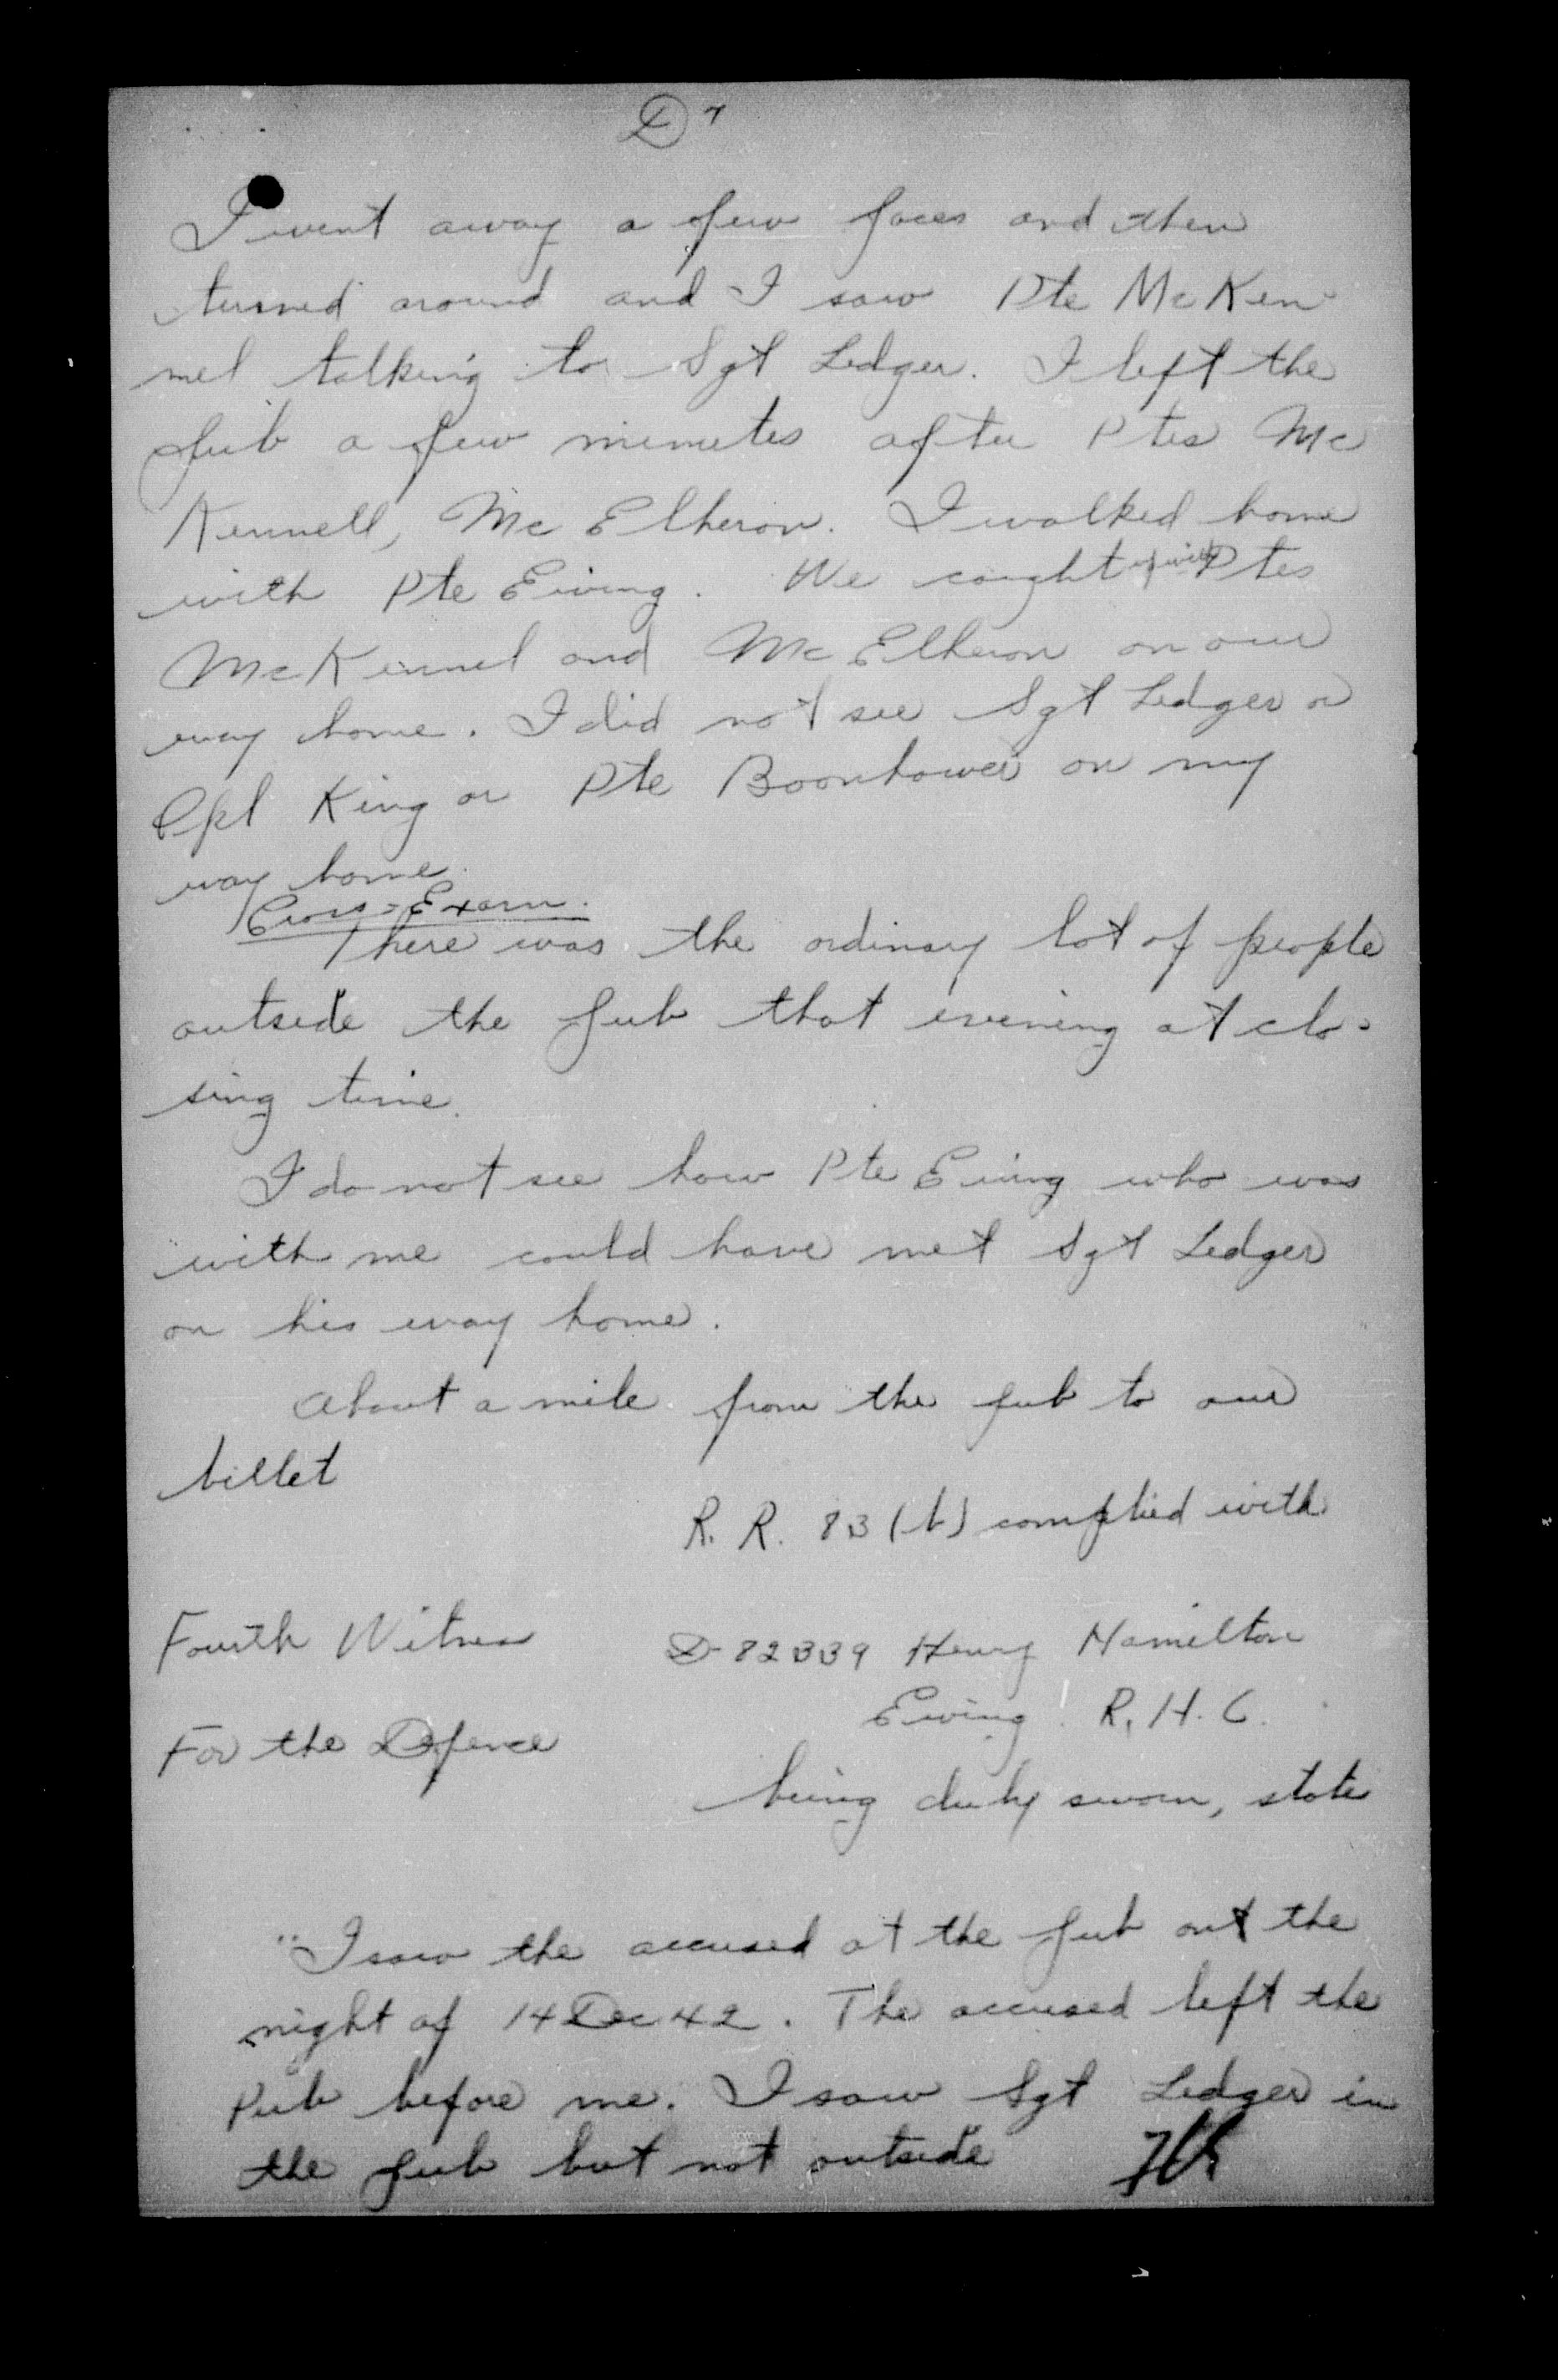 D7
I went away a few paces and then
turned around and I saw Pte McKen-
nel talking to Sgt Ledger. I left the
pub a few minutes after Ptes Mc
Kennell, McElheron. I walked home
with Pte Ewing. We caught up with Ptes
McKennel and McElheron on our
way home. I did not see Sgt Ledger or
Cpl King or Pte Boonhower on my
way home.
Cross-Exam.
There was the ordinary lot of people
outside the pub that evening at clo-
sing time.
I do not see how Pte Ewing who was
with me could have met Sgt Ledger
on his way home.
About a mile from the pub to our
billet
R. R. 83 (b) complied with
Fourth Witness
D-82339 Henry Hamilton
Ewing R.H.C.
For the Defence
being duly sworn, states
"I saw the accused at the pub on the
night of 14 Dec 42. The accused left the
Pub before me. I saw Sgt Ledger in
the pub but not outside